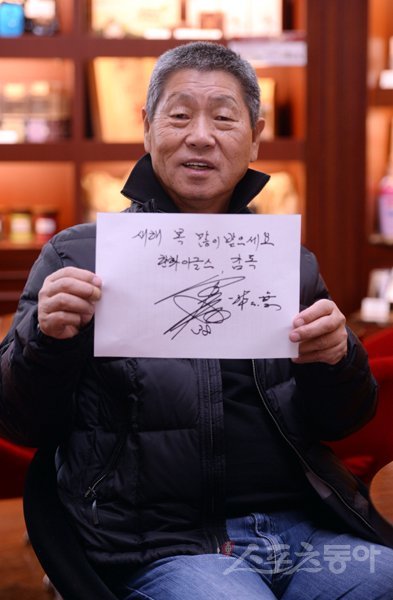 새해 복 많이 받으세요
한화이글스, 감독
스포츠동아